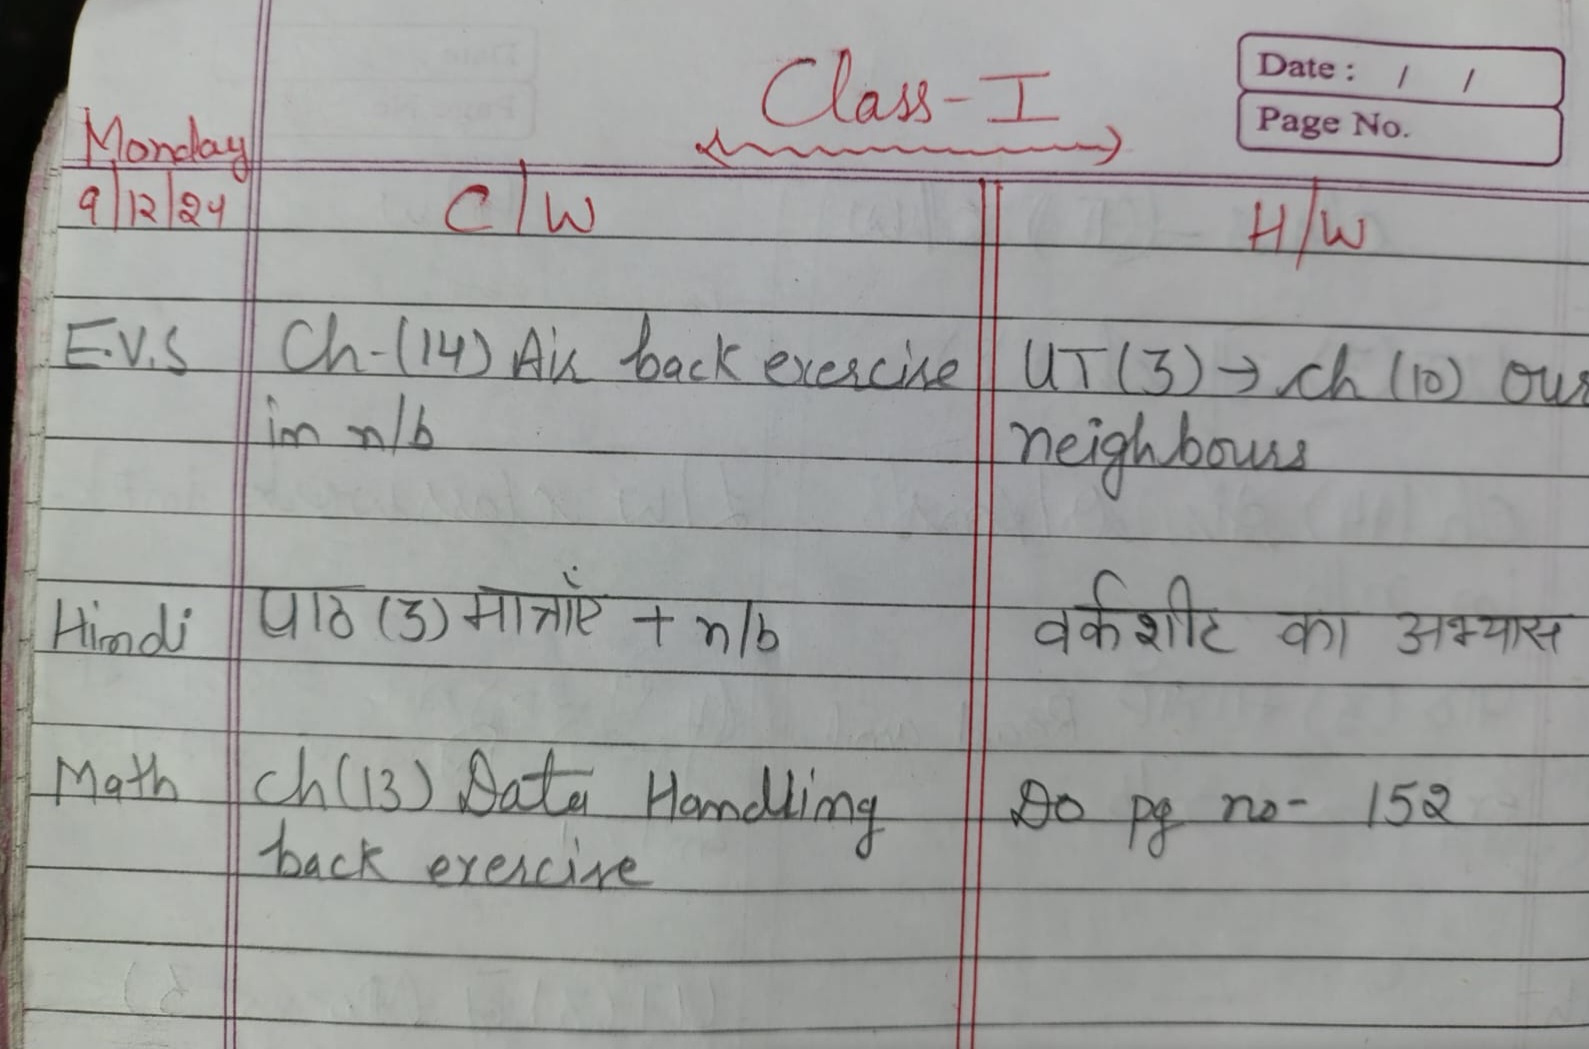 Class-I
Date : / /
Page No.
Monday
9/12/24 C/W H/W
E.V.S Ch-(14) Air back exercise UT(3)→ ch (10) our
in n/b neighbours
Hindi पाठ (3) मात्राएं + n/b वर्कशीट का अभ्यास
Math Ch(13) Data Handling Do pg no- 152
back exercise